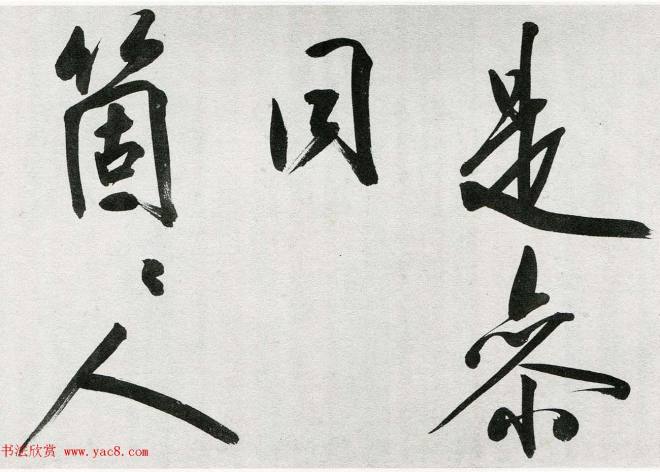 是
同
箇〻人
書法欣赏 www.yac8.com